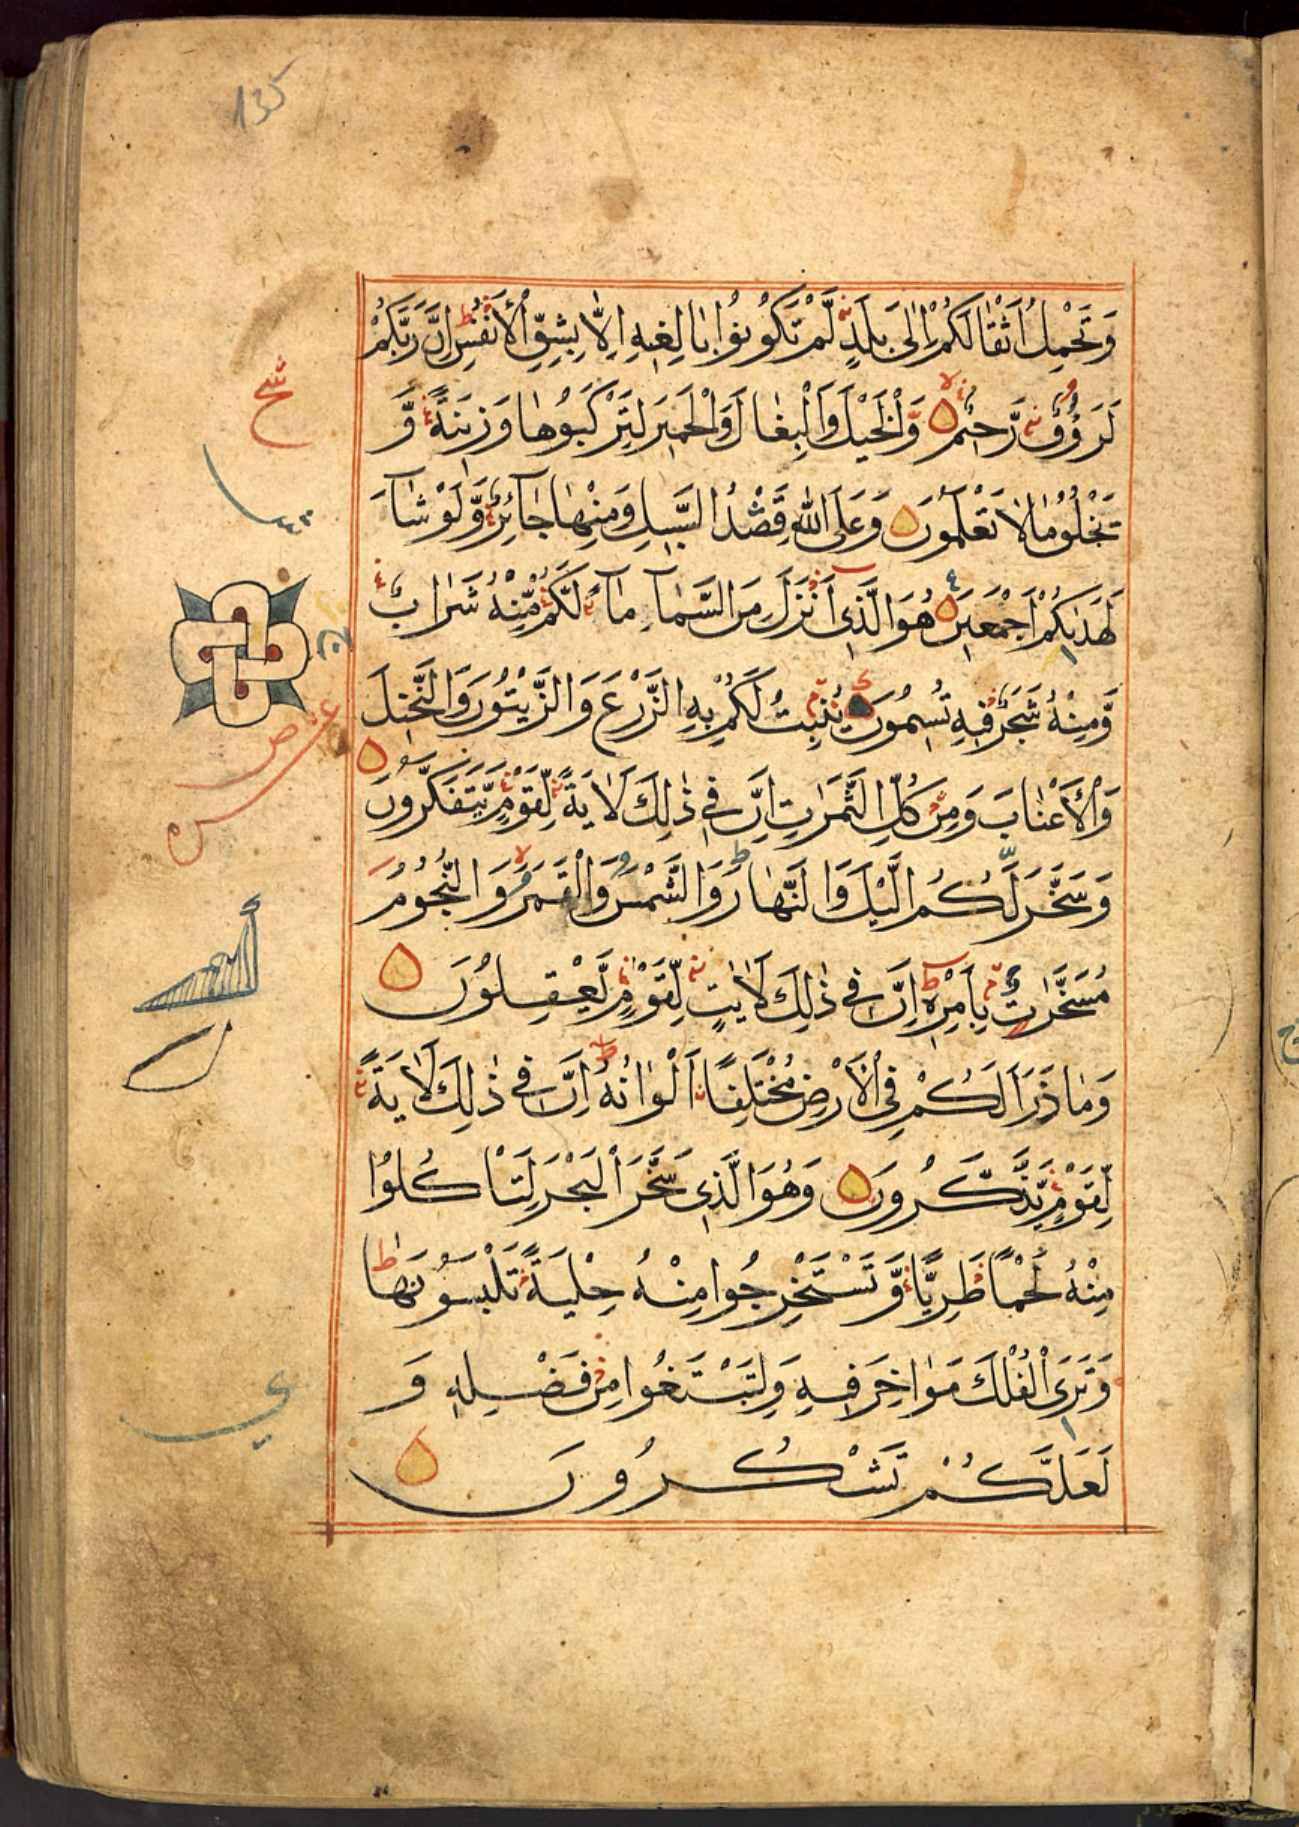 135
وَتَحْمِلُ اَثْقَالَكُمْ اِلٰى بَلَدٍ لَّمْ تَكُوْنُوْا بَالِغِيْهِ اِلَّا بِشِقِّ الْاَنْفُسِ اِنَّ رَبَّكُمْ
لَرَءُوْفٌ رَّحِيْمٌ وَّالْخَيْلَ وَالْبِغَالَ وَالْحَمِيْرَ لِتَرْكَبُوْهَا وَزِيْنَةً وَّ
يَخْلُقُ مَا لَا تَعْلَمُوْنَ وَعَلَى اللّٰهِ قَصْدُ السَّبِيْلِ وَمِنْهَا جَآئِرٌ وَّلَوْ شَآءَ
لَهَدٰىكُمْ اَجْمَعِيْنَ هُوَ الَّذِيْ اَنْزَلَ مِنَ السَّمَآءِ مَآءً لَّكُمْ مِّنْهُ شَرَابٌ
وَّمِنْهُ شَجَرٌ فِيْهِ تُسِيْمُوْنَ يُنْبِتُ لَكُمْ بِهِ الزَّرْعَ وَالزَّيْتُوْنَ وَالنَّخِيْلَ
وَالْاَعْنَابَ وَمِنْ كُلِّ الثَّمَرٰتِ اِنَّ فِيْ ذٰلِكَ لَاٰيَةً لِّقَوْمٍ يَّتَفَكَّرُوْنَ
وَسَخَّرَ لَكُمُ الَّيْلَ وَالنَّهَارَ وَالشَّمْسَ وَالْقَمَرَ وَالنُّجُوْمُ
مُسَخَّرٰتٌ بِاَمْرِهٖ اِنَّ فِيْ ذٰلِكَ لَاٰيٰتٍ لِّقَوْمٍ يَّعْقِلُوْنَ
وَمَا ذَرَاَ لَكُمْ فِي الْاَرْضِ مُخْتَلِفًا اَلْوَانُهٗ اِنَّ فِيْ ذٰلِكَ لَاٰيَةً
لِّقَوْمٍ يَّذَّكَّرُوْنَ وَهُوَ الَّذِيْ سَخَّرَ الْبَحْرَ لِتَاْكُلُوْا
مِنْهُ لَحْمًا طَرِيًّا وَّتَسْتَخْرِجُوا مِنْهُ حِلْيَةً تَلْبَسُوْنَهَا
وَتَرَى الْفُلْكَ مَوَاخِرَ فِيْهِ وَلِتَبْتَغُوا مِنْ فَضْلِهٖ وَ
لَعَلَّكُمْ تَشْكُرُوْنَ